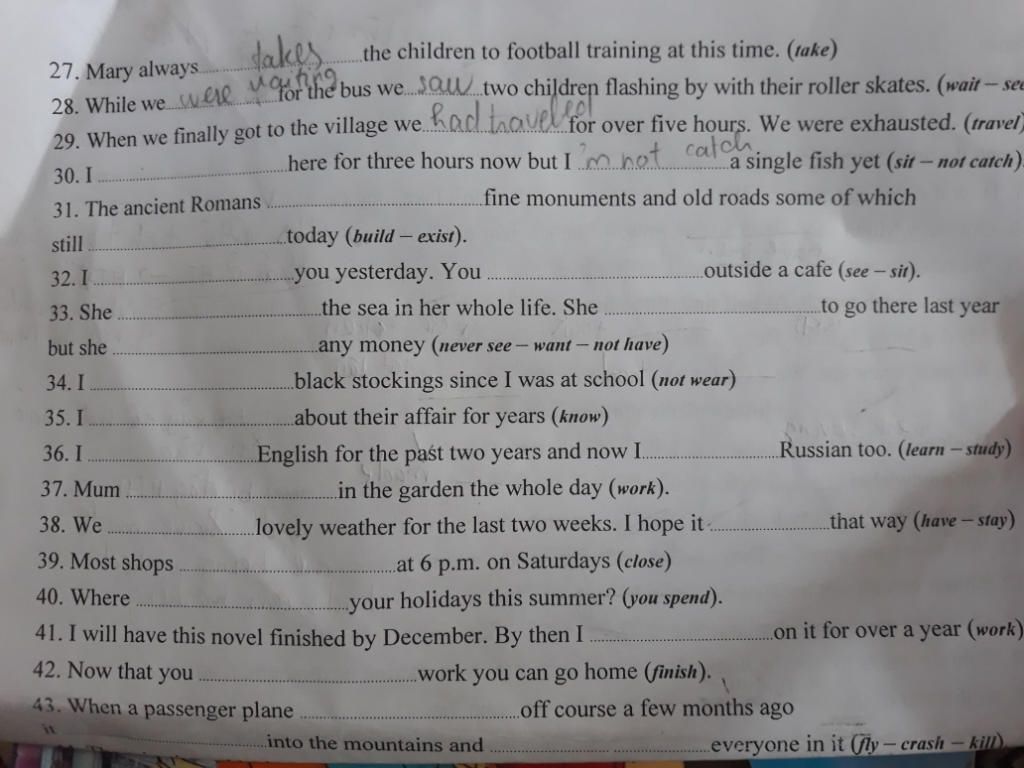 27. Mary always takes the children to football training at this time. (take)
28. While we were waiting for the bus we saw two children flashing by with their roller skates. (wait – see
29. When we finally got to the village we had travelled for over five hours. We were exhausted. (travel)
30. I ........ here for three hours now but I 'm not catch a single fish yet (sit – not catch).
31. The ancient Romans ........ fine monuments and old roads some of which
still ........ today (build – exist).
32. I ........ you yesterday. You ........ outside a cafe (see – sit).
33. She ........ the sea in her whole life. She ........ to go there last year
but she ........ any money (never see – want – not have)
34. I ........ black stockings since I was at school (not wear)
35. I ........ about their affair for years (know)
36. I ........ English for the past two years and now I ........ Russian too. (learn – study)
37. Mum ........ in the garden the whole day (work).
38. We ........ lovely weather for the last two weeks. I hope it ........ that way (have – stay)
39. Most shops ........ at 6 p.m. on Saturdays (close)
40. Where ........ your holidays this summer? (you spend).
41. I will have this novel finished by December. By then I ........ on it for over a year (work)
42. Now that you ........ work you can go home (finish).
43. When a passenger plane ........ off course a few months ago
it ........ into the mountains and ........ everyone in it (fly – crash – kill)